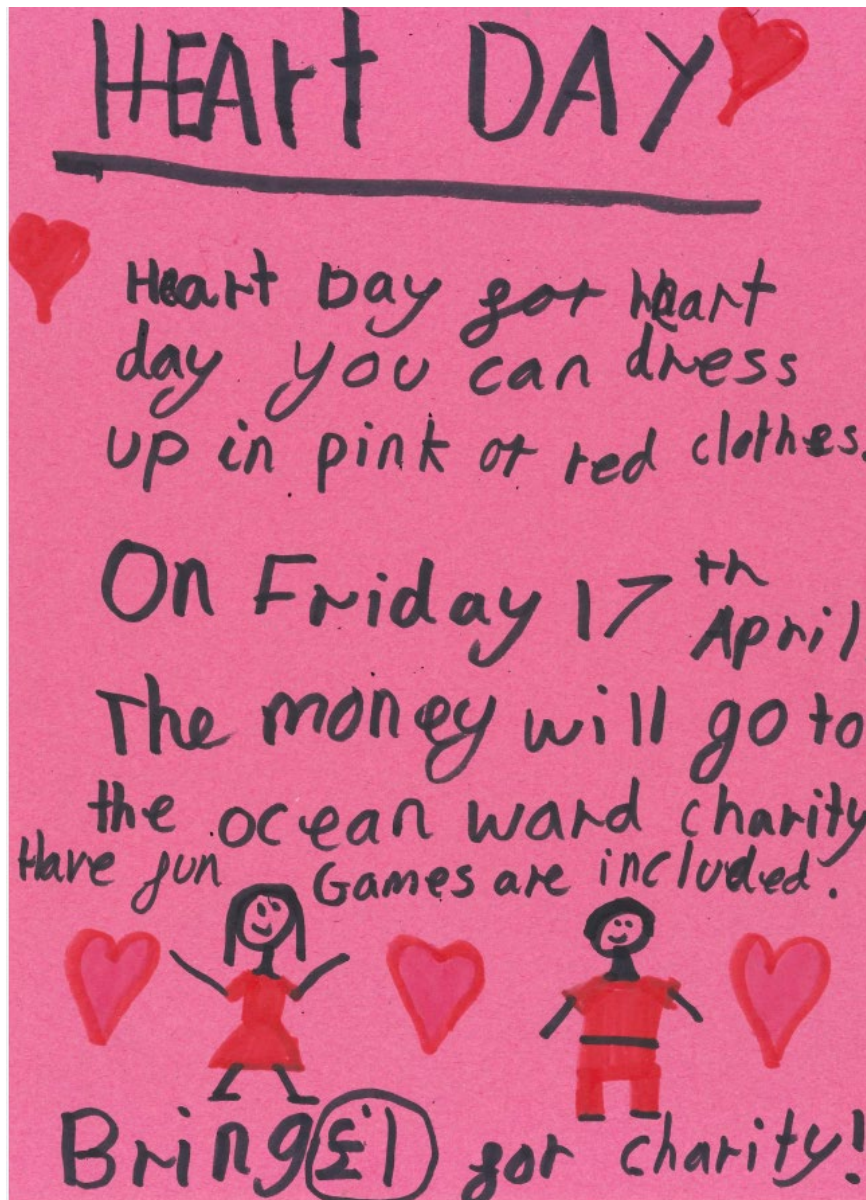 HEArt DAY
Heart Day for heart
day you can dress
up in pink or red clothes.
On Friday 17th
April
The money will go to
the ocean ward charity
Have fun Games are included.
Bring £1 for charity!